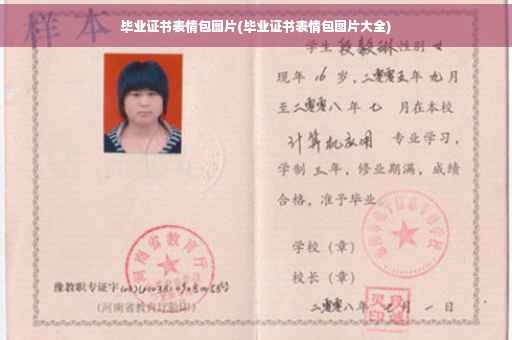 毕业证书表情包图片(毕业证书表情包图片大全)
样本
学生段毅琳性别女
现年16岁，二零零五年九月
至二零零八年七月在本校
计算机应用 专业学习，
学制三年，修业期满，成绩
合格，准予毕业
学校（章）
校长（章）
二零零八年七月一日
河南省教育厅
豫教职专证字
（河南省教育厅验印）